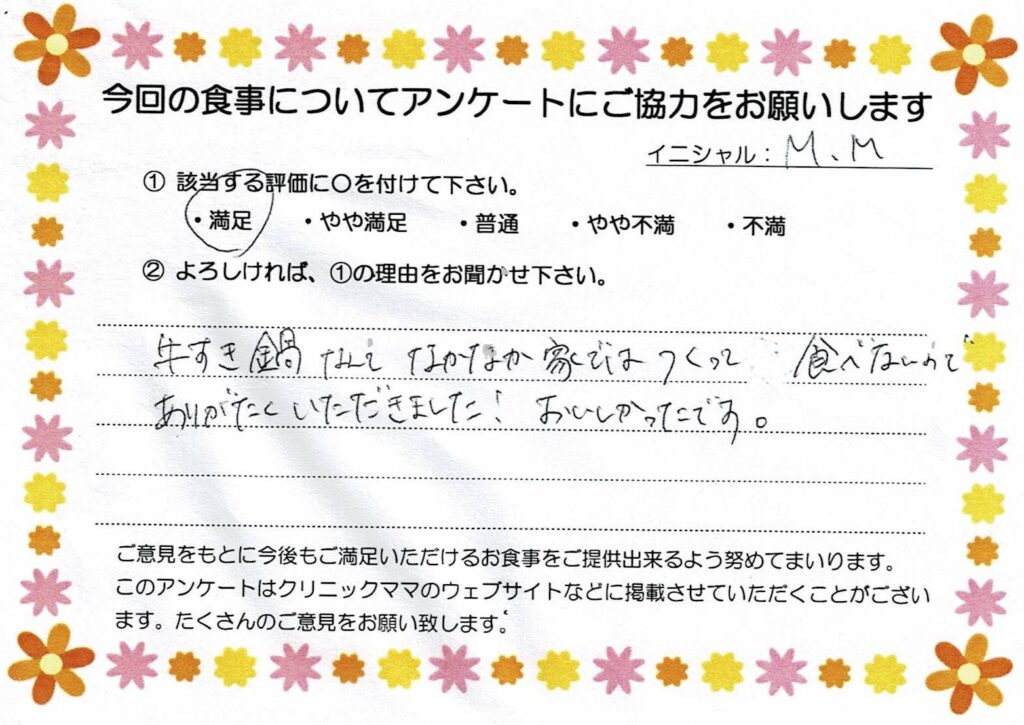 今回の食事についてアンケートにご協力をお願いします
イニシャル：M.M
① 該当する評価に〇を付けて下さい。
・満足 ・やや満足 ・普通 ・やや不満 ・不満
② よろしければ、①の理由をお聞かせ下さい。
牛すき鍋なんてなかなか家ではつくって食べないので
ありがたくいただきました！おいしかったです。
ご意見をもとに今後もご満足いただけるお食事をご提供出来るよう努めてまいります。
このアンケートはクリニックママのウェブサイトなどに掲載させていただくことがござい
ます。たくさんのご意見をお願い致します。